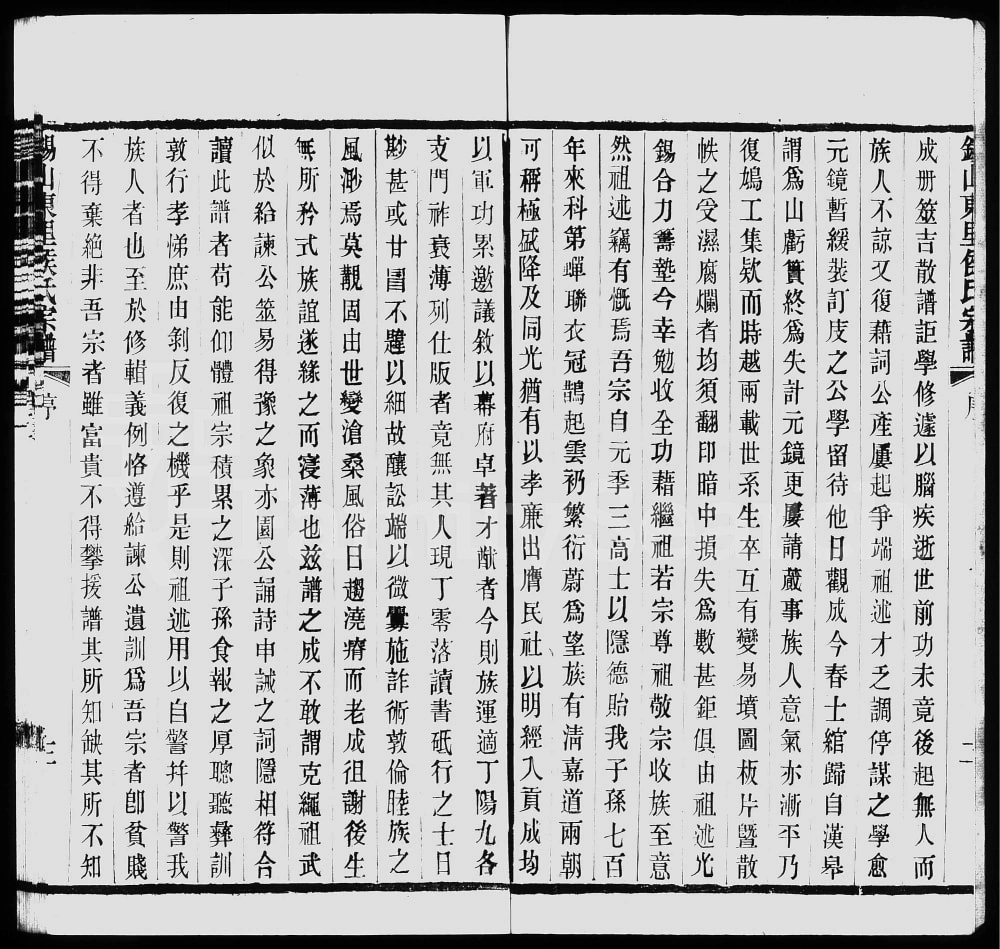 錫山東里侯氏宗譜 序 二
成册筮吉散譜詎學修遽以腦疾逝世前功未竟後起無人而
族人不諒又復藉詞公產屢起爭端祖述才乏調停謀之學愈
元鏡暫緩裝訂庋之公學留待他日觀成今春士綰歸自漢皋
謂爲山虧簣終爲失計元鏡更屢請蕆事族人意氣亦漸平乃
復鳩工集欵而時越兩載世系生卒互有變易墳圖板片暨散
帙之受濕腐爛者均須翻印暗中損失爲數甚鉅俱由祖述光
錫合力籌墊今幸勉收全功藉繼祖若宗尊祖敬宗收族至意
然祖述竊有慨焉吾宗自元季三高士以隱德貽我子孫七百
年來科第蟬聯衣冠鵲起雲礽繁衍蔚爲望族有淸嘉道兩朝
可稱極盛降及同光猶有以孝廉出膺民社以明經入貢成均
以軍功累邀議敘以幕府卓著才猷者今則族運適丁陽九各
支門祚衰薄列仕版者竟無其人現丁零落讀書砥行之士日
尠甚或甘冒不韙以細故釀訟端以微釁施詐術敦倫睦族之
風渺焉莫覩固由世變滄桑風俗日趨澆瘠而老成徂謝後生
無所矜式族誼遂緣之而寖薄也茲譜之成不敢謂克繩祖武
似於給諫公筮易得豫之象亦園公誦詩申誡之詞隱相符合
讀此譜者苟能仰體祖宗積累之深子孫食報之厚聰聽彝訓
敦行孝悌庶由剝反復之機乎是則祖述用以自警幷以警我
族人者也至於修輯義例恪遵給諫公遺訓爲吾宗者卽貧賤
不得棄絕非吾宗者雖富貴不得攀援譜其所知缺其所不知
錫山東里侯氏宗譜 序 三